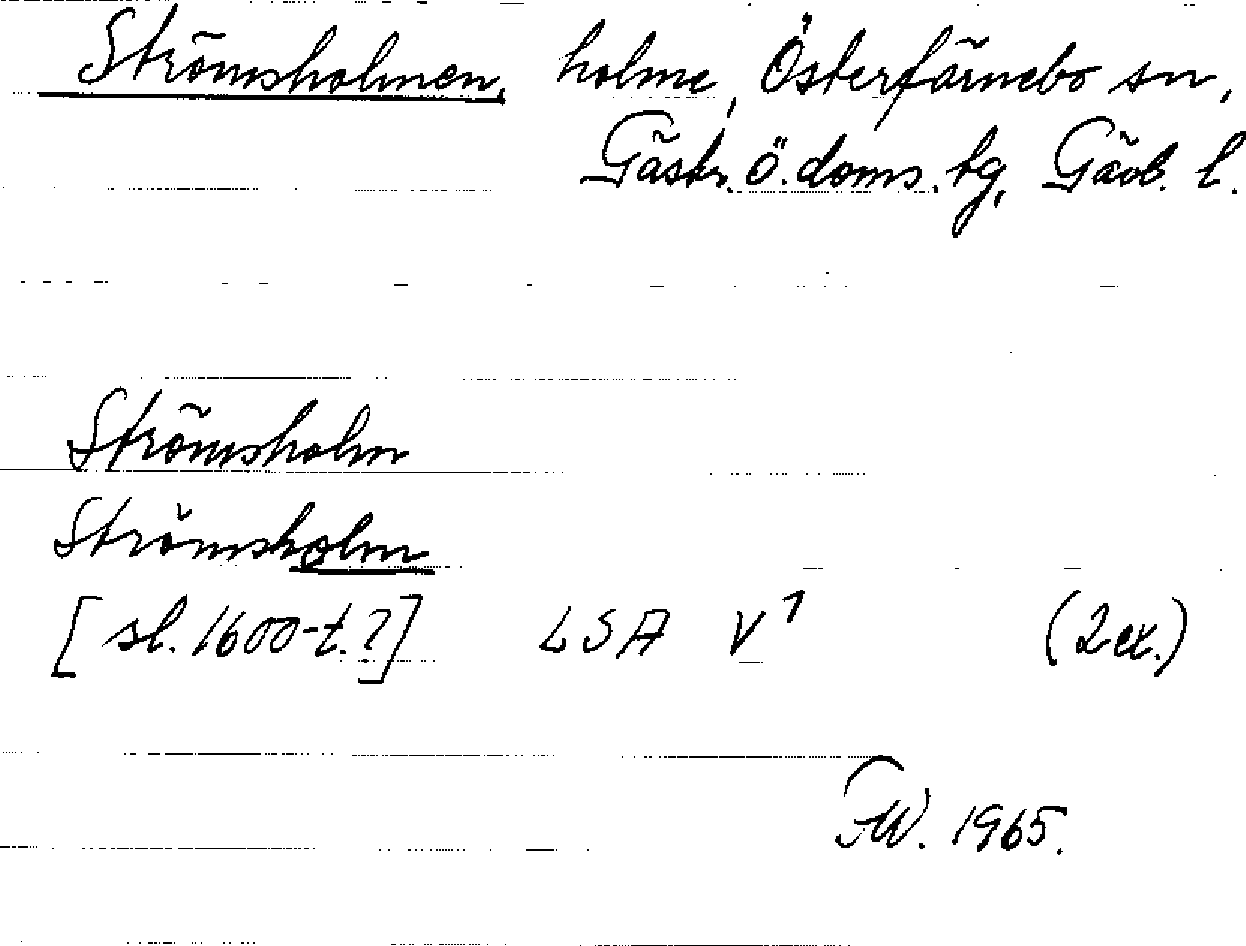 Strömsholmen, holme, Österfärnebo sn,
Gästr. ö. doms. tg, Gävl. l.
Strömsholm
Strömsholm
[sl. 1600-t.?] LSA V⁷ (2 ex.)
1965.